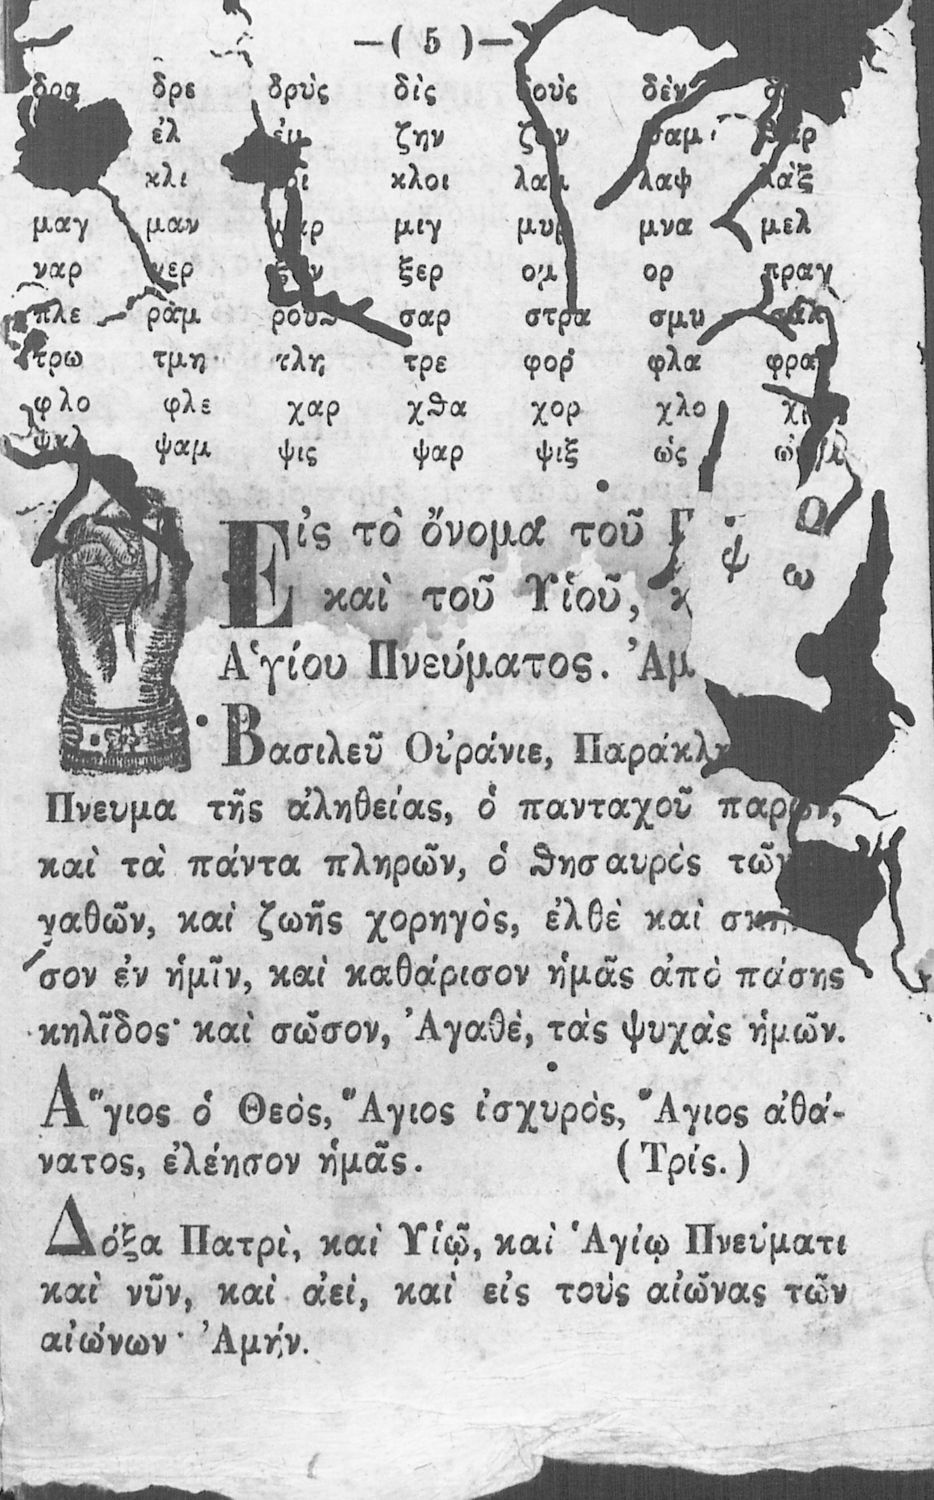 —( 5 )—
δρα δρε δρὺς δὶς δοὺς δὲν
ἐλ ἐμ ζην ζων σαμ
κλι κλοι λαμ λαψ λὰξ
μαγ μαν μαρ μιγ μυρ μνα μελ
ναρ νερ ξερ ορ πραγ
πλε ρὰμ σαρ στρα σμυ σὰλ
τρω τμη τλη τρε φορ φλα φρα
φλο φλε χαρ χθα χορ χλο
ψαμ ψις ψαρ ψιξ ὡς
Εἰς τὸ ὄνομα τοῦ Ω
ψ ω
καὶ τοῦ Υἱοῦ,
Ἁγίου Πνεύματος.
Βασιλεῦ Οὐράνιε,
Πνευμα τῆς ἀληθείας, ὁ πανταχοῦ παρὼν,
καὶ τὰ πάντα πληρῶν, ὁ ϑησαυρὸς τῶν
γαθῶν, καὶ ζωῆς χορηγὸς, ἐλθὲ καὶ
σον ἐν ἡμῖν, καὶ καθάρισον ἡμᾶς ἀπὸ πάσης
κηλῖδος· καὶ σῶσον, Ἀγαθὲ, τὰς ψυχὰς ἡμῶν.
Ἅγιος ὁ Θεὸς, Ἅγιος ἰσχυρὸς, Ἅγιος ἀθά-
νατος, ἐλέησον ἡμᾶς. (Τρίς.)
Δόξα Πατρὶ, καὶ Υἱῷ, καὶ Ἁγίῳ Πνεύματι
καὶ νῦν, καὶ ἀεὶ, καὶ εἰς τοὺς αἰῶνας τῶν
αἰώνων· Ἀμήν.